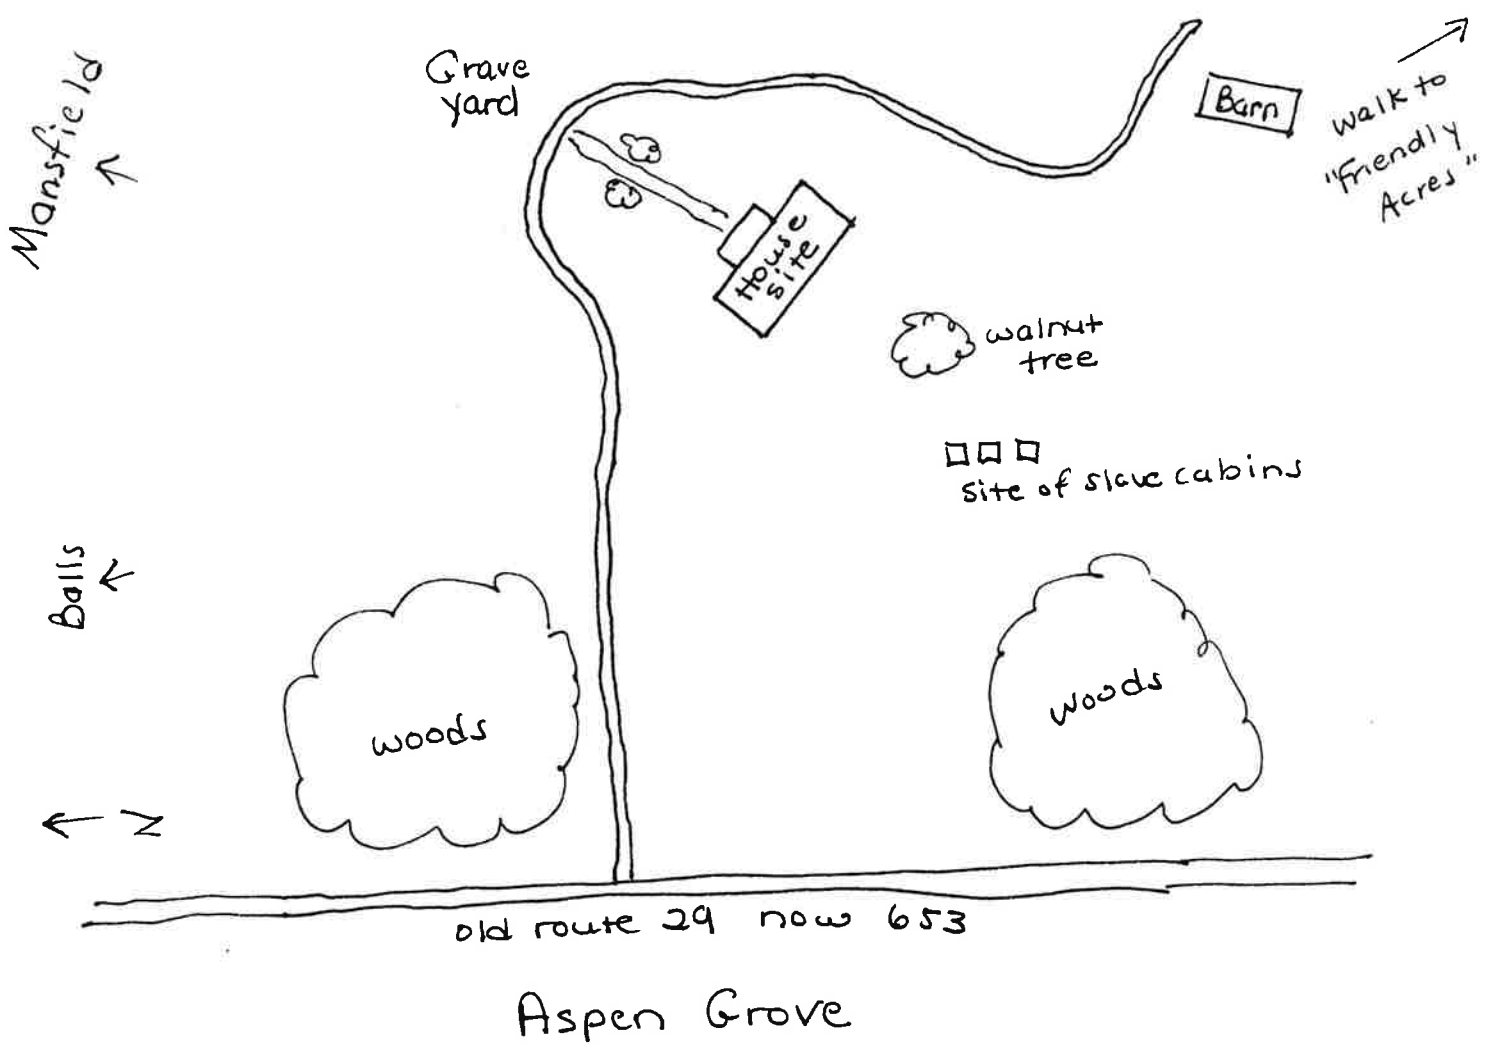 Grave
yard
Barn
walk to
"Friendly
Acres"
Mansfield
House
site
walnut
tree
site of slave cabins
Balls
woods
woods
N
old route 29 now 653
Aspen Grove